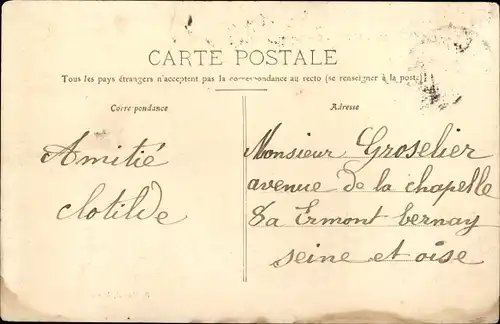 CARTE POSTALE
Tous les pays étrangers n'acceptent pas la correspondance au recto (se renseigner à la poste)
Correspondance
Adresse
Amitié
Clotilde
Monsieur Groselier
avenue de la chapelle
Ermont Cernay
seine et oise